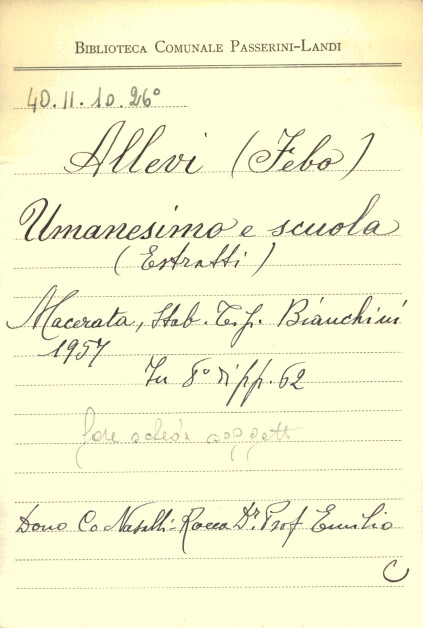 BIBLIOTECA COMUNALE PASSERINI-LANDI
40.II.10.26°
Allevi (Febo)
Umanesimo e scuola
(Estratti)
Macerata, Stab. Tip. Bianchini
1957
In 8° di pp. 62
fare schede soggett
Dono Co Nasalli-Rocca Dr. Prof Emilio
C